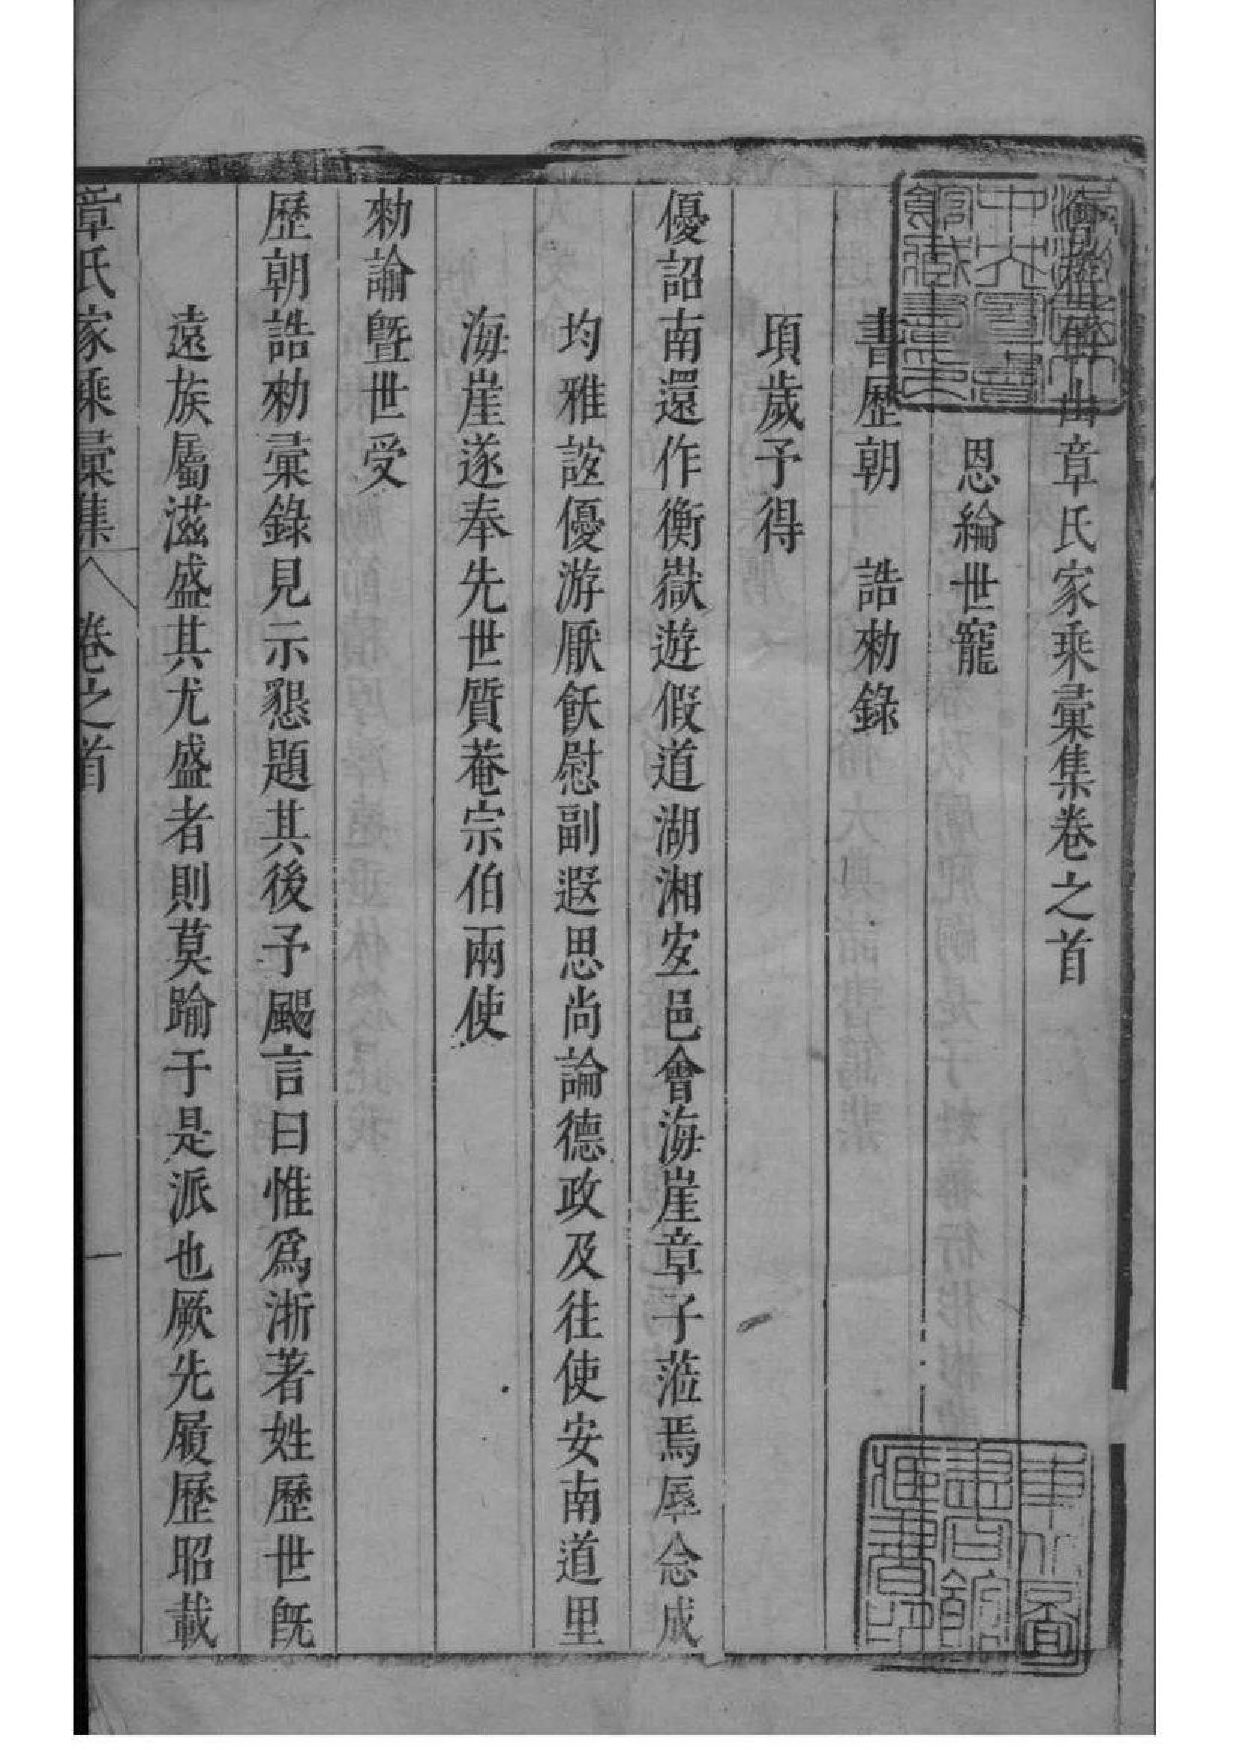 山章氏家乘彚集卷之首
恩綸世寵
書歷朝　誥勑錄
項歲予得
優詔南還作衡嶽遊假道湖湘安邑會海崖章子蒞焉辱念成
均雅誼優游厭飫慰副遐思尚論德政及往使安南道里
海崖遂奉先世質菴宗伯兩使
勑諭曁世受
歷朝誥勑彙錄見示懇題其後予颺言曰惟爲浙著姓歷世旣
遠族屬滋盛其尤盛者則莫踰于是派也厥先履歷昭載
章氏家乘彚集
卷之首
一